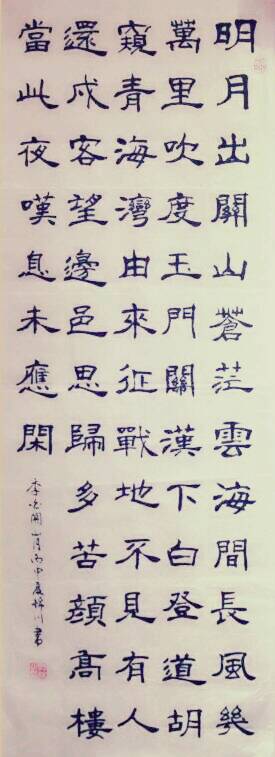 明月出關山蒼茫雲海間長風幾
萬里吹度玉門關漢下白登道胡
窺青海灣由來征戰地不見有人
還戍客望邊邑思歸多苦顏高樓
當此夜嘆息未應閑
李白關山月丙申夏川書